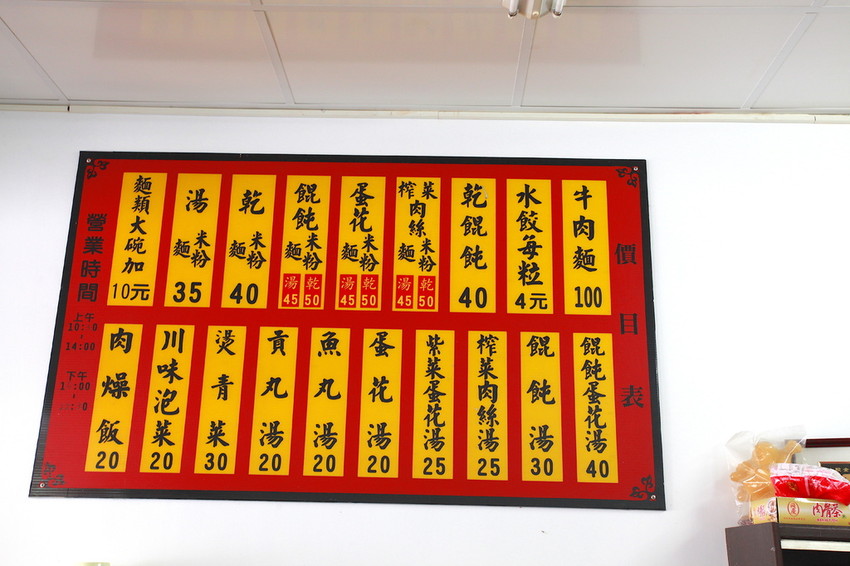 價目表
牛肉麵 100
水餃每粒 4元
乾餛飩 40
榨菜肉絲麵 米粉 湯45 乾50
蛋花麵 米粉 湯45 乾50
餛飩麵 米粉 湯45 乾50
乾麵 米粉 40
湯麵 米粉 35
麵類大碗加 10元
餛飩蛋花湯 40
餛飩湯 30
榨菜肉絲湯 25
紫菜蛋花湯 25
蛋花湯 20
魚丸湯 20
貢丸湯 20
燙青菜 30
川味泡菜 20
肉燥飯 20
營業時間
上午
14:00
下午
肉骨茶